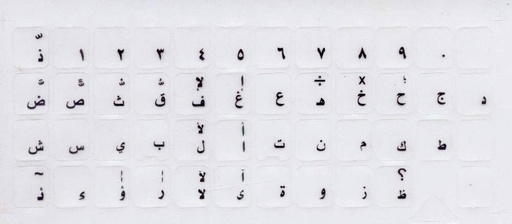 ذ ١ ٢ ٣ ٤ ٥ ٦ ٧ ٨ ٩ ٠
لإ إ ÷ × ؛
ض ص ث ق ف غ ع ه خ ح ج د
لأ أ
ش س ي ب ل ا ت ن م ك ط
~ لآ آ ؟
ئ ء ؤ ر لا ى ة و ز ظ